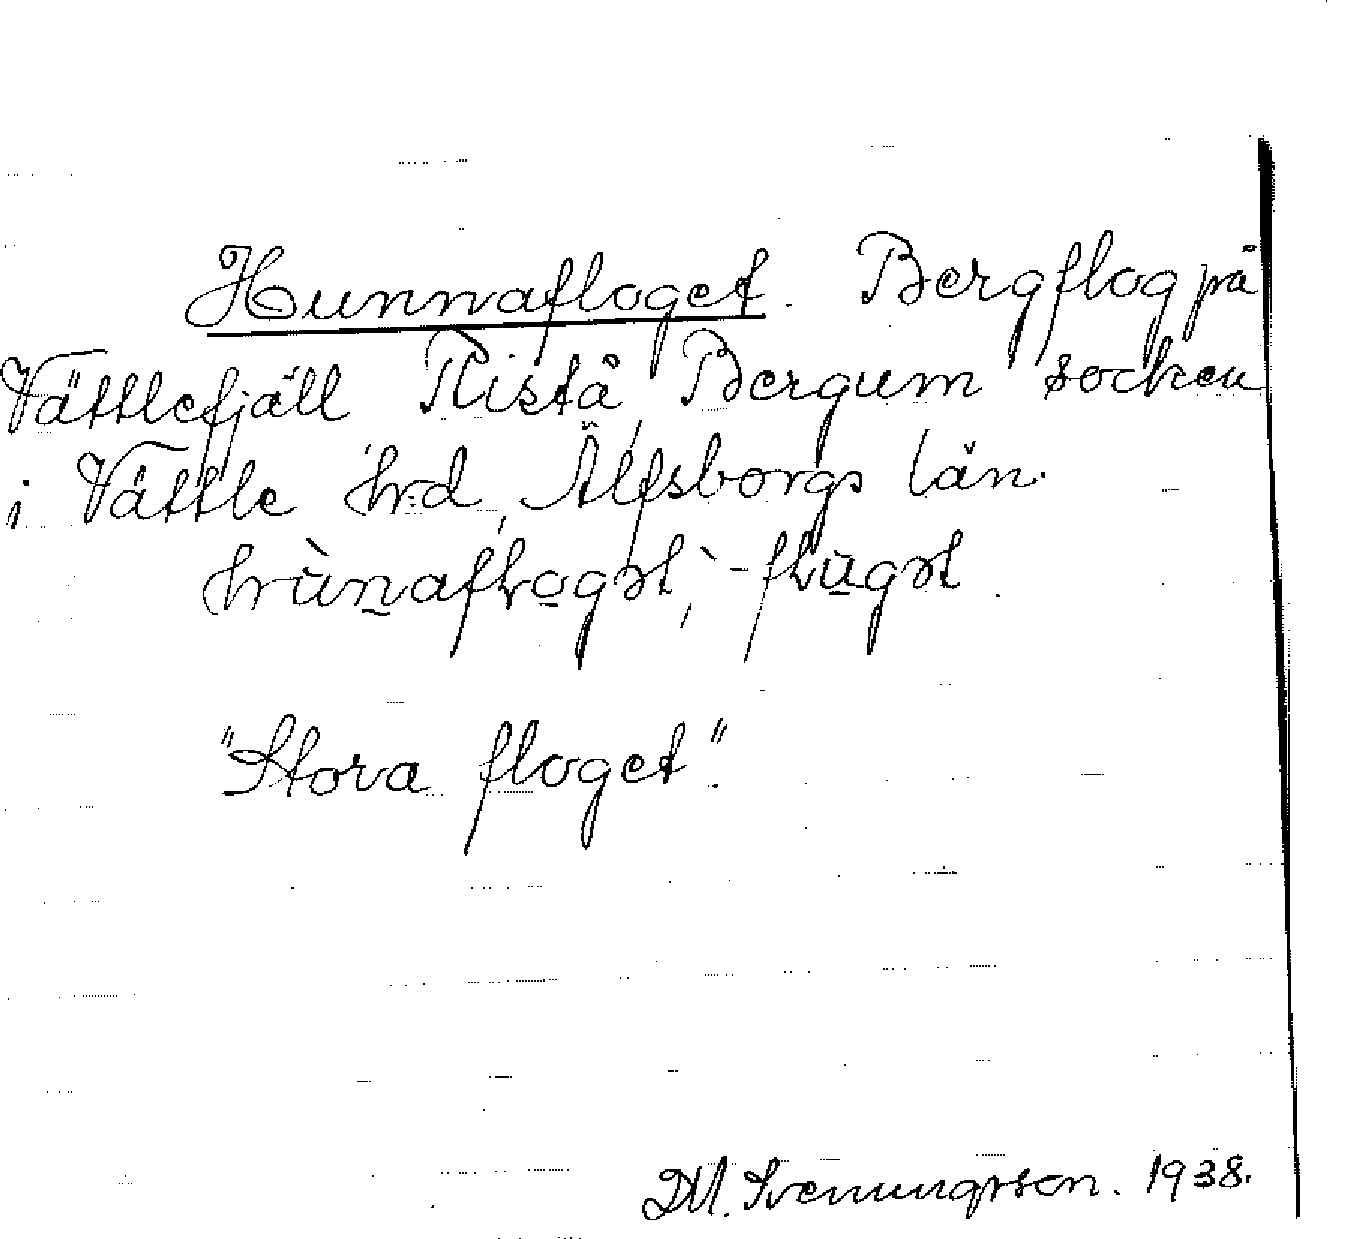 Hunnafloget. Bergflog på
Vättlefjäll Ristå, Bergum socken
i Vättle hrd, Älfsborgs län.
"Stora floget".
D.M. Svenungsson. 1938.